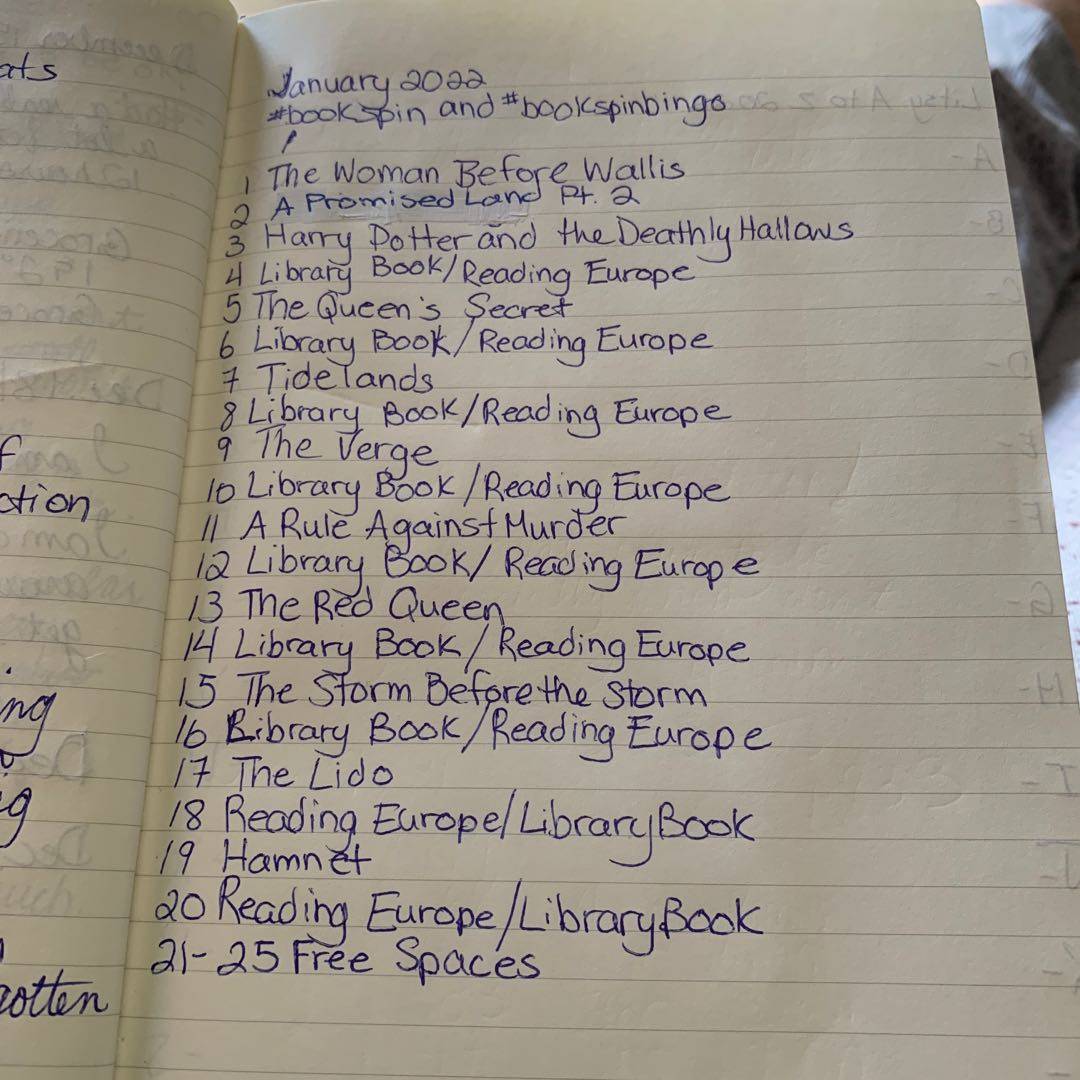 ats
f
otion
ing
g
gotten
January 2022
#bookspin and #bookspinbingo
1 The Woman Before Wallis
2 A Promised Land Pt. 2
3 Harry Potter and the Deathly Hallows
4 Library Book/Reading Europe
5 The Queen's Secret
6 Library Book/Reading Europe
7 Tidelands
8 Library Book/Reading Europe
9 The Verge
10 Library Book/Reading Europe
11 A Rule Against Murder
12 Library Book/Reading Europe
13 The Red Queen
14 Library Book/Reading Europe
15 The Storm Before the Storm
16 Library Book/Reading Europe
17 The Lido
18 Reading Europe/Library Book
19 Hamnet
20 Reading Europe/Library Book
21-25 Free Spaces